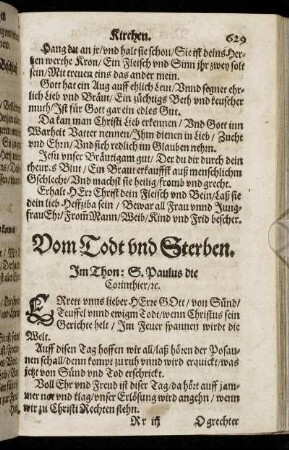 Kirchen. 629
Hang du an jr/vnd halt sie schon/Sie ist deins Her-
tzen werthe Kron/Ein Fleisch vnd Sinn jhr zwey solt
sein/Mit trewen eins das ander mein.
Gott hat ein Aug auff ehlich Leut/Vnnd segnet ehr-
lich Lieb vnd Bräut/Ein züchtigs Beth vnd keuscher
muth/Ist für Gott gar ein edles Gut.
Da kan man Christi Lieb erkennen/Vnd Gott inn
Warheit Vatter nennen/Ihm dienen in Lieb/Zucht
vnd Ehrn/Vnd sich redlich im Glauben nehrn.
Jesu vnser Bräutigam gut/Der du dir durch dein
theurs Blut/Ein Braut erkauffst auß menschlichm
Gschlecht/Vnd machst sie heilig/fromb vnd grecht.
Erhalt HErr Christ dein Fleisch vnd Bein/Laß sie
dein lieb Heffziba sein/Bewar all Fraw vnnd Jung-
fraw Ehr/From̃ Mann/Weib/Kind vnd Frid bescher.
Vom Todt vnd Sterben.
Im Thon: S. Paulus die
Corinthier/rc.
ERrett vnns lieber HErre GOtt/von Sünd/
Teuffel vnnd ewigm Todt/wenn Christus sein
Gerichte helt/Im Feuer spannen wirdt die
Welt.
Auff disen Tag hoffen wir all/laß hören der Posau-
nen schall/denn kompt zu ruh vnnd wird erquickt/was
jetzt von Sünd vnd Tod erschrickt.
Voll Ehr vnd Freud ist diser Tag/da hört auff jam-
mer not vnd klag/vnser Erlösung wird angehn/wenn
wir zu Christi Rechten stehn.
Rr iij O grechter